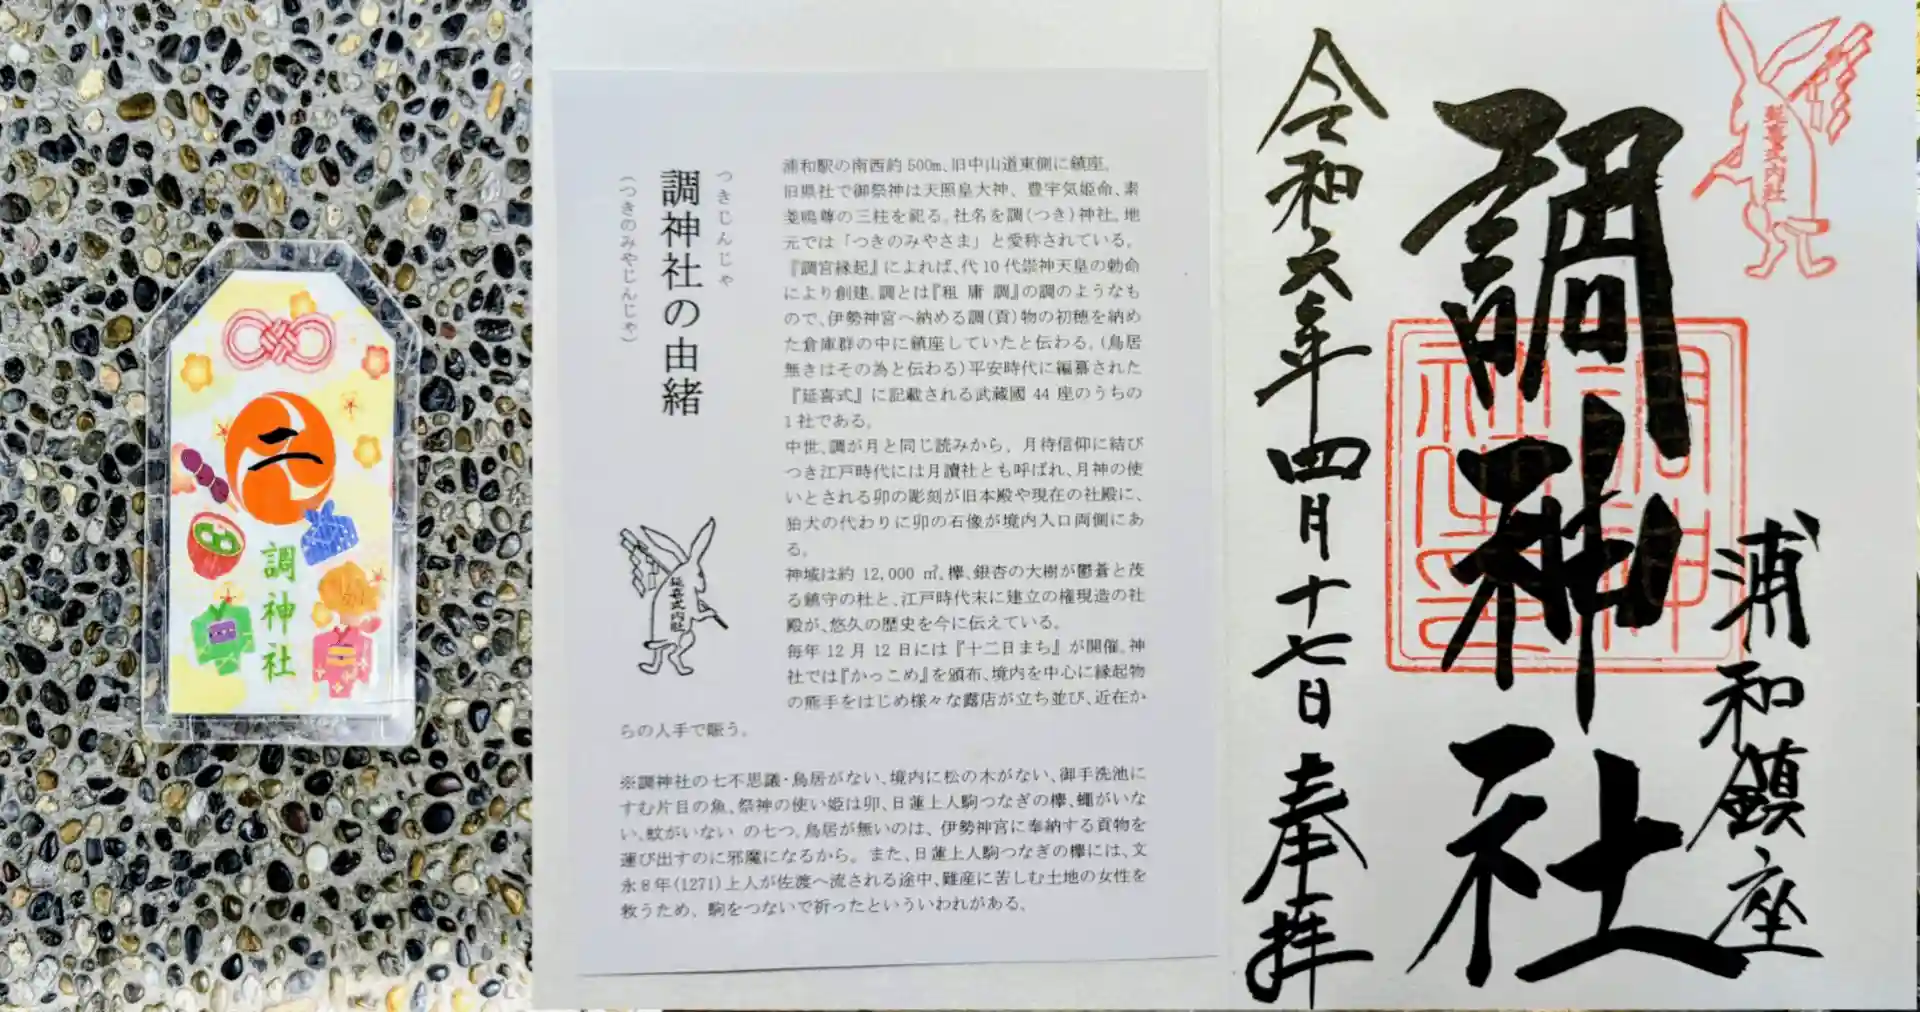 二
調神社
つきじんじゃ
調神社の由緒
(つきのみやじんじゃ)
延喜式内社
浦和駅の南西約500m、旧中山道東側に鎮座。
旧県社で御祭神は天照皇大神、豊宇気姫命、素
戔嗚尊の三柱を祀る。社名を調(つき)神社。地
元では「つきのみやさま」と愛称されている。
『調宮縁起』によれば、代10代崇神天皇の勅命
により創建。調とは『租 庸 調』の調のようなも
ので、伊勢神宮へ納める調(貢)物の初穂を納め
た倉庫群の中に鎮座していたと伝わる。(鳥居
無きはその為と伝わる)平安時代に編纂された
『延喜式』に記載される武蔵國44座のうちの
1社である。
中世、調が月と同じ読みから、月待信仰に結び
つき江戸時代には月讀社とも呼ばれ、月神の使
いとされる卯の彫刻が旧本殿や現在の社殿に、
狛犬の代わりに卯の石像が境内入口両側にあ
る。
神域は約12,000㎡、欅、銀杏の大樹が鬱蒼と茂
る鎮守の杜と、江戸時代末に建立の権現造の社
殿が、悠久の歴史を今に伝えている。
毎年12月12日には『十二日まち』が開催。神
社では『かっこめ』を頒布、境内を中心に縁起物
の熊手をはじめ様々な露店が立ち並び、近在か
らの人手で賑う。
※調神社の七不思議・鳥居がない、境内に松の木がない、御手洗池に
すむ片目の魚、祭神の使い姫は卯、日蓮上人駒つなぎの欅、蠅がいな
い、蚊がいない の七つ。鳥居が無いのは、伊勢神宮に奉納する貢物を
運び出すのに邪魔になるから。また、日蓮上人駒つなぎの欅には、文
永8年(1271)上人が佐渡へ流される途中、難産に苦しむ土地の女性を
救うため、駒をつないで祈ったといういわれがある。
延喜式内社
浦和鎮座
調神社
令和六年四月十七日 奉拝